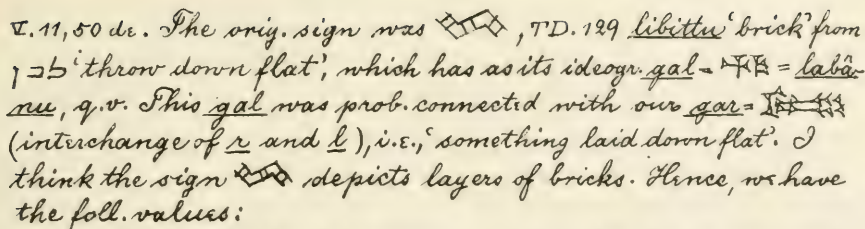 V. 11, 50 de. The orig. sign was , TD. 129 libittu 'brick' from
לבן 'throw down flat', which has as its ideogr. gal = = labâ-
nu, q.v. This gal was prob. connected with our gar =
(interchange of r and l), i.e., 'something laid down flat'. I
think the sign depicts layers of bricks. Hence, we have
the foll. values: